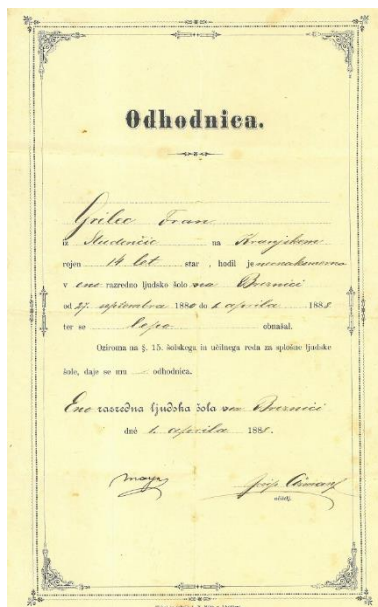 Odhodnica.
Grilec Fran
iz Studenčic na Kranjskem
rojen 14 let star, hodil je
v eno razredno ljudsko šolo na Breznici
od 27. septembra 1880 do 1. aprila 188
ter se lepo obnašal.
Oziroma na §. 15. šolskega in učilnega reda za splošne ljudske
šole, daje se mu — odhodnica.
Eno razredna ljudska šola na Breznici
dné 1. aprila 188